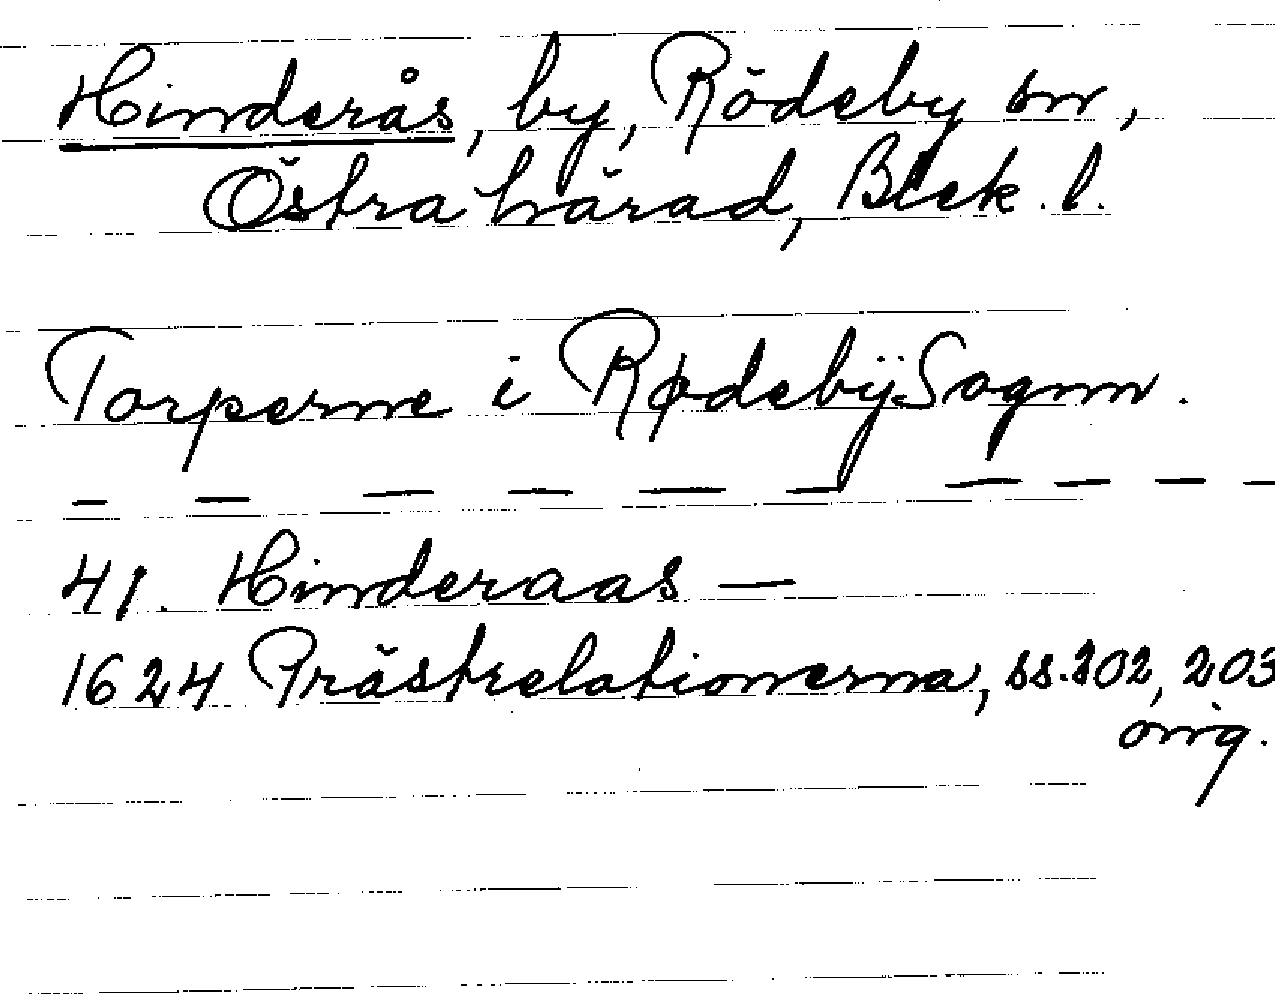 Hinderås, by, Rödeby sn,
Östra härad, Blek. l.
Torperne i Rødebÿ Sognn.
— — — — — — — — — —
41. Hinderaas —
1624 Prästrelationerna, ss. 202, 203
orig.